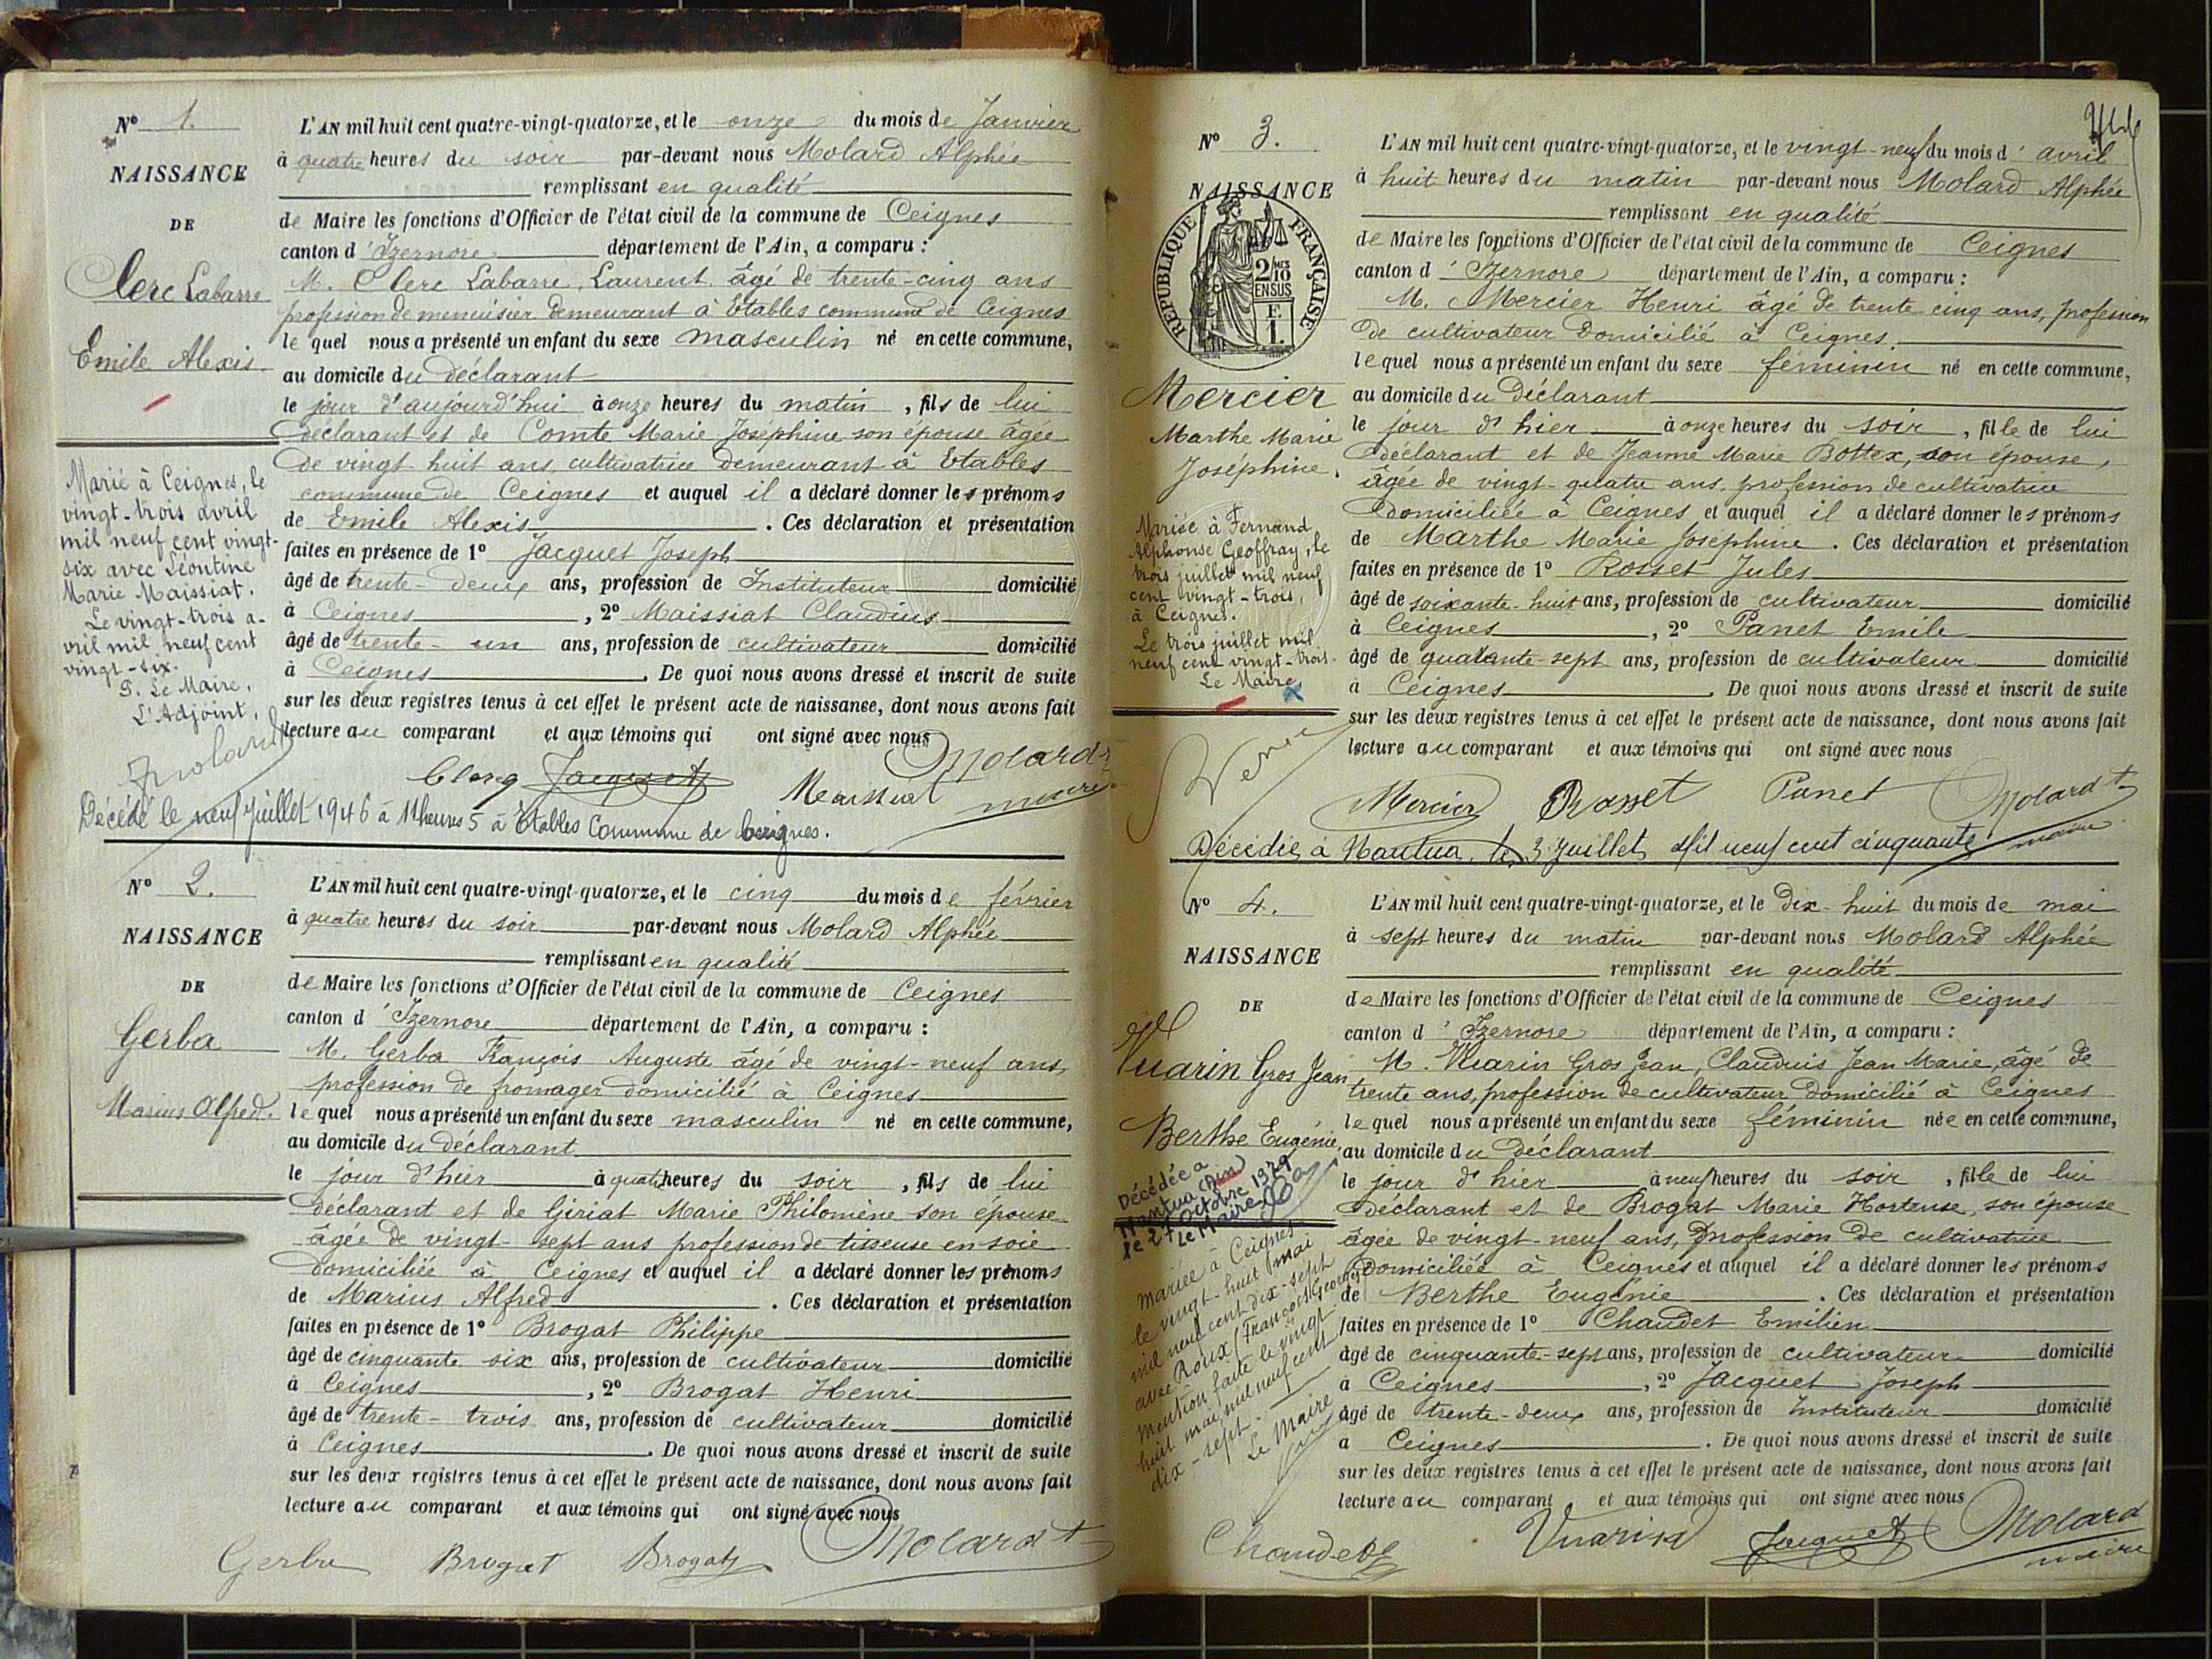 N° 1.
NAISSANCE
DE
Clerc Labarre
Emile Alexis.
L'AN mil huit cent quatre-vingt-quatorze, et le onze du mois de Janvier
à quatre heures du soir par-devant nous Molard Alphée
remplissant en qualité
de Maire les fonctions d'Officier de l'état civil de la commune de Ceignes
canton d'Izernore département de l'Ain, a comparu :
M. Clerc Labarre, Laurent, âgé de trente-cinq ans
profession de menuisier demeurant à Etables commune de Ceignes
lequel nous a présenté un enfant du sexe masculin né en cette commune,
au domicile du déclarant
le jour d'aujourd'hui à onze heures du matin, fils de lui
déclarant et de Comte Marie Joséphine son épouse âgée
de vingt huit ans, cultivatrice demeurant à Etables
commune de Ceignes et auquel il a déclaré donner les prénoms
de Emile Alexis . Ces déclaration et présentation
faites en présence de 1° Jacquet Joseph
âgé de trente-deux ans, profession de Instituteur domicilié
à Ceignes , 2° Maissiat Claudius
âgé de trente-un ans, profession de cultivateur domicilié
à Ceignes . De quoi nous avons dressé et inscrit de suite
sur les deux registres tenus à cet effet le présent acte de naissance, dont nous avons fait
lecture au comparant et aux témoins qui ont signé avec nous
Marié à Ceignes, le
vingt-trois avril
mil neuf cent vingt-
six avec Léontine
Marie Maissiat.
Le vingt-trois a-
vril mil neuf cent
vingt-six.
P. Le Maire,
L'Adjoint,
Molard
Clerg Jacquet Maissiat Molard
maire
Décédé le neuf Juillet 1946 à 11 heures 5 à Etables Commune de Ceignes.
N° 2.
NAISSANCE
DE
Gerba
Marius Alfred.
L'AN mil huit cent quatre-vingt-quatorze, et le cinq du mois de février
à quatre heures du soir par-devant nous Molard Alphée
remplissant en qualité
de Maire les fonctions d'Officier de l'état civil de la commune de Ceignes
canton d'Izernore département de l'Ain, a comparu :
M. Gerba François Auguste âgé de vingt-neuf ans,
profession de fromager domicilié à Ceignes
lequel nous a présenté un enfant du sexe masculin né en cette commune,
au domicile du déclarant
le jour d'hier à quatre heures du soir, fils de lui
déclarant et de Giriat Marie Philomène son épouse
âgée de vingt-sept ans profession de tisseuse en soie
domiciliée à Ceignes et auquel il a déclaré donner les prénoms
de Marius Alfred . Ces déclaration et présentation
faites en présence de 1° Brogat Philippe
âgé de cinquante six ans, profession de cultivateur domicilié
à Ceignes , 2° Brogat Henri
âgé de trente-trois ans, profession de cultivateur domicilié
à Ceignes . De quoi nous avons dressé et inscrit de suite
sur les deux registres tenus à cet effet le présent acte de naissance, dont nous avons fait
lecture au comparant et aux témoins qui ont signé avec nous
Gerba Brogat Brogat Molard
N° 3.
NAISSANCE
RÉPUBLIQUE FRANÇAISE
2/10 MES
EN SUS
F.
1.
Mercier
Marthe Marie
Joséphine.
L'AN mil huit cent quatre-vingt-quatorze, et le vingt-neuf du mois d'avril
à huit heures du matin par-devant nous Molard Alphée
remplissant en qualité
de Maire les fonctions d'Officier de l'état civil de la commune de Ceignes
canton d'Izernore département de l'Ain, a comparu :
M. Mercier Henri âgé de trente cinq ans, profession
de cultivateur domicilié à Ceignes.
lequel nous a présenté un enfant du sexe féminin né en cette commune,
au domicile du déclarant
le jour d'hier à onze heures du soir, fille de lui
déclarant et de Jeanne Marie Bottex, son épouse,
âgée de vingt-quatre ans, profession de cultivatrice
domiciliée à Ceignes et auquel il a déclaré donner les prénoms
de Marthe Marie Joséphine . Ces déclaration et présentation
faites en présence de 1° Rosset Jules
âgé de soixante-huit ans, profession de cultivateur domicilié
à Ceignes , 2° Panet Emile
âgé de quarante-sept ans, profession de cultivateur domicilié
à Ceignes . De quoi nous avons dressé et inscrit de suite
sur les deux registres tenus à cet effet le présent acte de naissance, dont nous avons fait
lecture au comparant et aux témoins qui ont signé avec nous
Mariée à Fernand
Alphonse Geoffray, le
trois juillet mil neuf
cent vingt-trois,
à Ceignes.
Le trois juillet mil
neuf cent vingt-trois.
Le Maire,
Mercier Rosset Panet Molard
maire
Décédée à Nantua, le 3 Juillet mil neuf cent cinquante
N° 4.
NAISSANCE
DE
Vuarin Gros Jean
Berthe Eugénie
L'AN mil huit cent quatre-vingt-quatorze, et le dix-huit du mois de mai
à sept heures du matin par-devant nous Molard Alphée
remplissant en qualité
de Maire les fonctions d'Officier de l'état civil de la commune de Ceignes
canton d'Izernore département de l'Ain, a comparu :
M. Vuarin Gros Jean, Claudius Jean Marie, âgé de
trente ans, profession de cultivateur domicilié à Ceignes
lequel nous a présenté un enfant du sexe féminin née en cette commune,
au domicile du déclarant
le jour d'hier à neuf heures du soir, fille de lui
déclarant et de Brogat Marie Hortense, son épouse
âgée de vingt-neuf ans, profession de cultivatrice
domiciliée à Ceignes et auquel il a déclaré donner les prénoms
de Berthe Eugénie . Ces déclaration et présentation
faites en présence de 1° Chaudet Emilien
âgé de cinquante-sept ans, profession de cultivateur domicilié
à Ceignes , 2° Jacquet Joseph
âgé de trente-deux ans, profession de Instituteur domicilié
à Ceignes . De quoi nous avons dressé et inscrit de suite
sur les deux registres tenus à cet effet le présent acte de naissance, dont nous avons fait
lecture au comparant et aux témoins qui ont signé avec nous
Décédée à
Nantua (Ain)
le 27 Octobre 1979
Le Maire
Mariée à Ceignes
le vingt-huit mai
mil neuf cent dix-sept
avec Roux (François Georges)
Mention faite le vingt-
huit mai mil neuf cent
dix-sept.
Le Maire
Chaudet Vuarin Jacquet Molard
maire